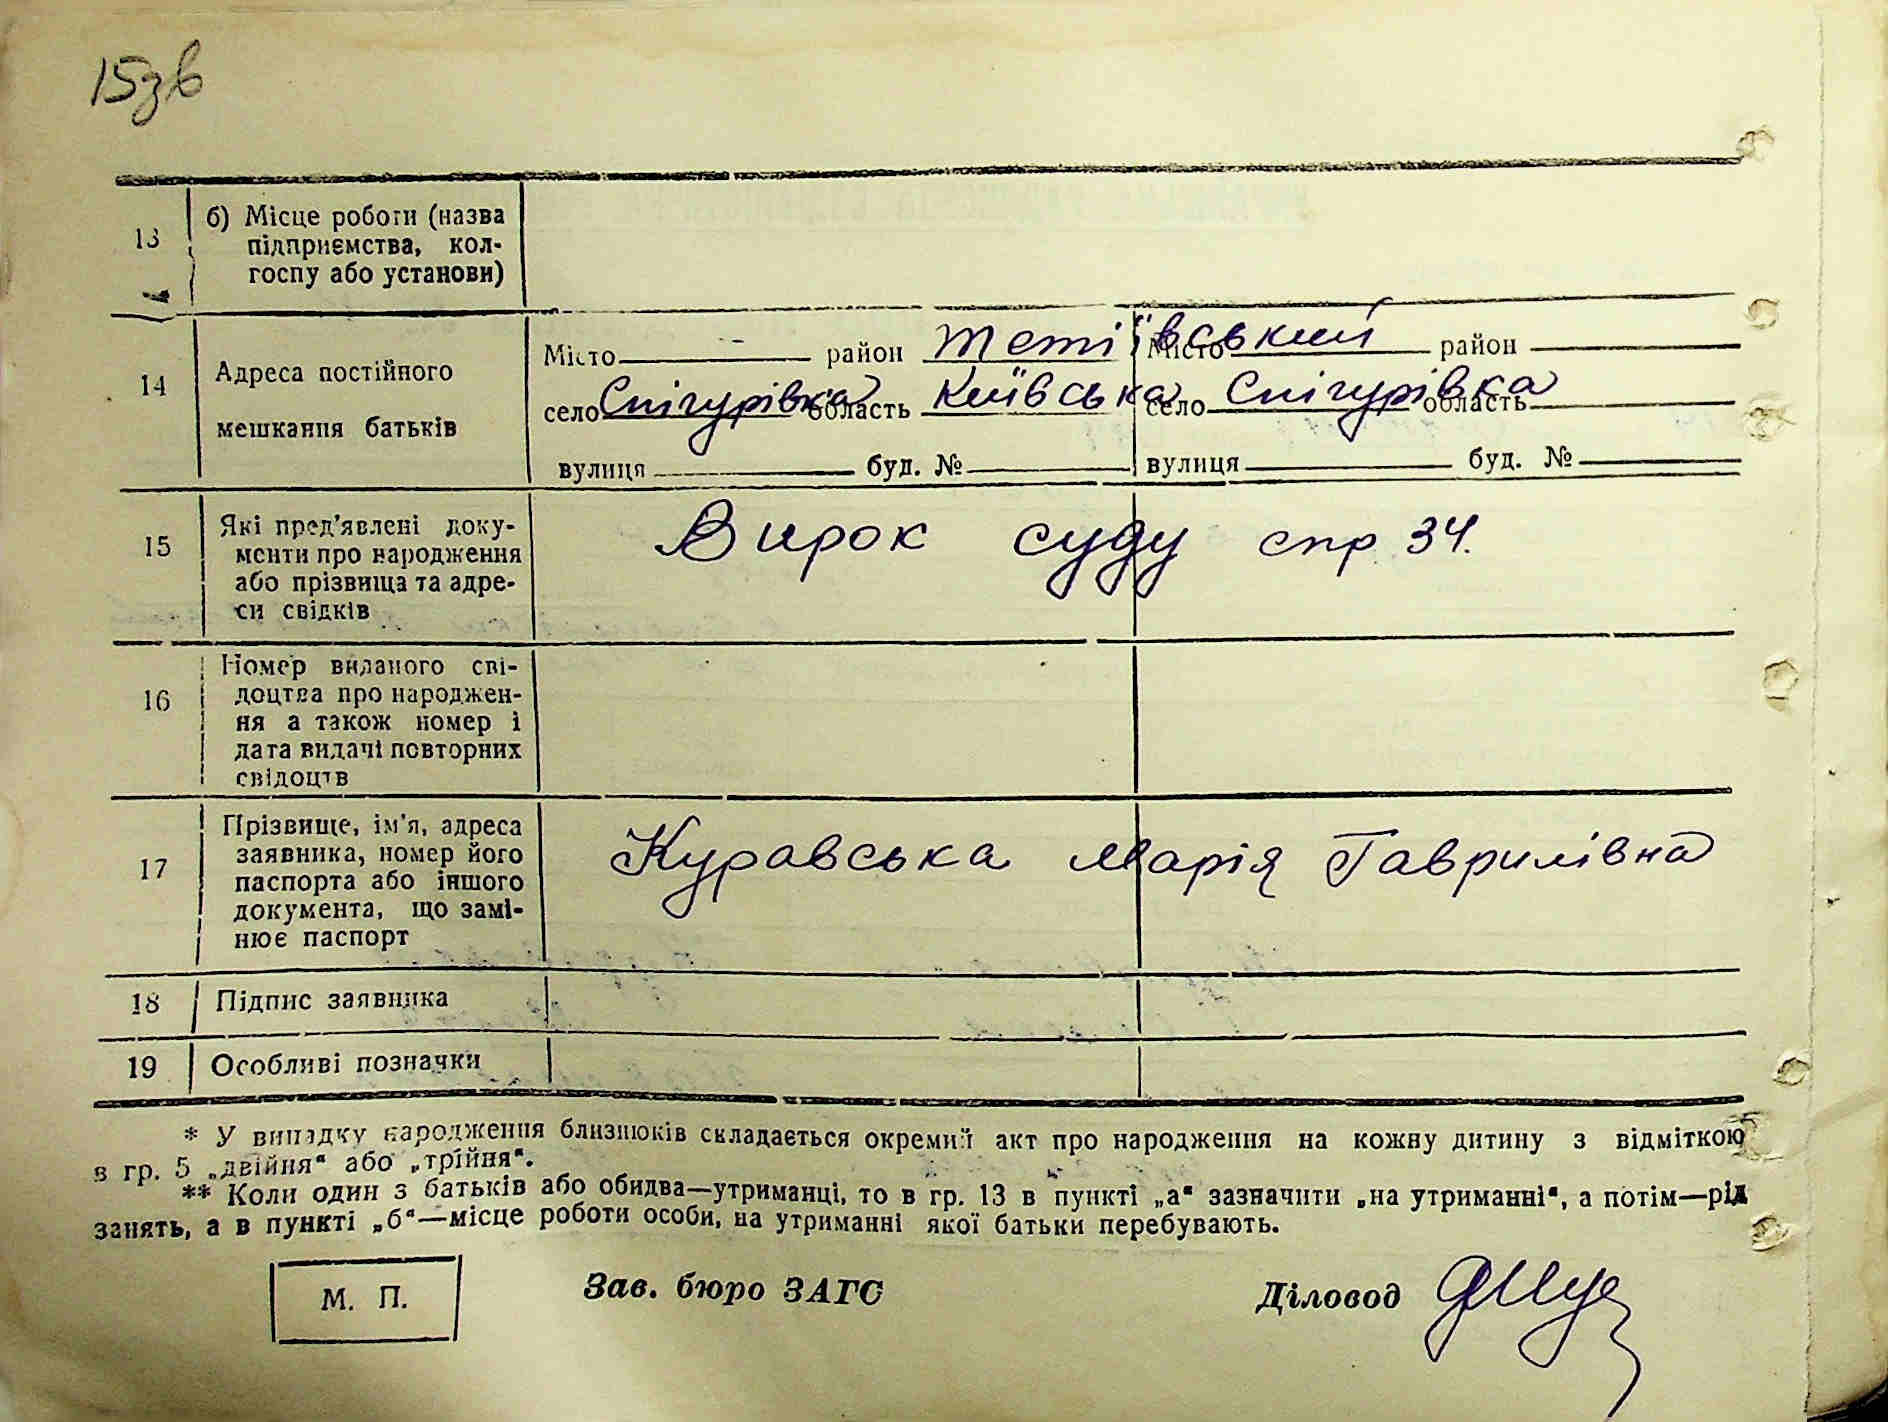 15зв
13 б) Місце роботи (назва
підприємства, кол-
госпу або установи)
14 Адреса постійного
мешкання батьків
Місто район Тетіївський Місто район
село Снігурівка область Київська село Снігурівка область
вулиця буд. № вулиця буд. №
15 Які пред'явлені доку-
менти про народження
або прізвища та адре-
си свідків
Вирок суду спр 34.
16 Номер виданого сві-
доцтва про народжен-
ня а також номер і
дата видачі повторних
свідоцтв
17 Прізвище, ім'я, адреса
заявника, номер його
паспорта або іншого
документа, що замі-
нює паспорт
Куравська Марія Гаврилівна
18 Підпис заявника
19 Особливі позначки
* У випадку народження близнюків складається окремий акт про народження на кожну дитину з відміткою
в гр. 5 „двійня“ або „трійня“.
** Коли один з батьків або обидва—утриманці, то в гр. 13 в пункті „а“ зазначити „на утриманні“, а потім—рід
занять, а в пункті „б“—місце роботи особи, на утриманні якої батьки перебувають.
М. П. Зав. бюро ЗАГС Діловод